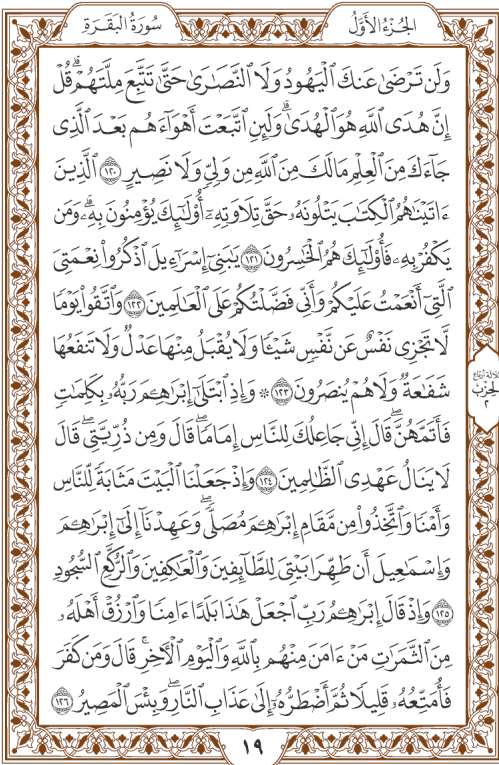 الجُزْءُ الأَوَّلُ
سُورَةُ البَقَرَةِ
وَلَن تَرْضَىٰ عَنكَ ٱلْيَهُودُ وَلَا ٱلنَّصَٰرَىٰ حَتَّىٰ تَتَّبِعَ مِلَّتَهُمْۗ قُلْ
إِنَّ هُدَى ٱللَّهِ هُوَ ٱلْهُدَىٰۗ وَلَئِنِ ٱتَّبَعْتَ أَهْوَآءَهُم بَعْدَ ٱلَّذِى
جَآءَكَ مِنَ ٱلْعِلْمِ مَا لَكَ مِنَ ٱللَّهِ مِن وَلِىٍّ وَلَا نَصِيرٍ ١٢٠ ٱلَّذِينَ
ءَاتَيْنَٰهُمُ ٱلْكِتَٰبَ يَتْلُونَهُۥ حَقَّ تِلَاوَتِهِۦٓ أُو۟لَٰٓئِكَ يُؤْمِنُونَ بِهِۦۗ وَمَن
يَكْفُرْ بِهِۦ فَأُو۟لَٰٓئِكَ هُمُ ٱلْخَٰسِرُونَ ١٢١ يَٰبَنِىٓ إِسْرَٰٓءِيلَ ٱذْكُرُوا۟ نِعْمَتِىَ
ٱلَّتِىٓ أَنْعَمْتُ عَلَيْكُمْ وَأَنِّى فَضَّلْتُكُمْ عَلَى ٱلْعَٰلَمِينَ ١٢٢ وَٱتَّقُوا۟ يَوْمًا
لَّا تَجْزِى نَفْسٌ عَن نَّفْسٍ شَيْـًٔا وَلَا يُقْبَلُ مِنْهَا عَدْلٌ وَلَا تَنفَعُهَا
شَفَٰعَةٌ وَلَا هُمْ يُنصَرُونَ ١٢٣ ۞ وَإِذِ ٱبْتَلَىٰٓ إِبْرَٰهِـۧمَ رَبُّهُۥ بِكَلِمَٰتٍ
فَأَتَمَّهُنَّۖ قَالَ إِنِّى جَاعِلُكَ لِلنَّاسِ إِمَامًاۖ قَالَ وَمِن ذُرِّيَّتِىۖ قَالَ
لَا يَنَالُ عَهْدِى ٱلظَّٰلِمِينَ ١٢٤ وَإِذْ جَعَلْنَا ٱلْبَيْتَ مَثَابَةً لِّلنَّاسِ
وَأَمْنًا وَٱتَّخِذُوا۟ مِن مَّقَامِ إِبْرَٰهِـۧمَ مُصَلًّىۖ وَعَهِدْنَآ إِلَىٰٓ إِبْرَٰهِـۧمَ
وَإِسْمَٰعِيلَ أَن طَهِّرَا بَيْتِىَ لِلطَّآئِفِينَ وَٱلْعَٰكِفِينَ وَٱلرُّكَّعِ ٱلسُّجُودِ
١٢٥ وَإِذْ قَالَ إِبْرَٰهِـۧمُ رَبِّ ٱجْعَلْ هَٰذَا بَلَدًا ءَامِنًا وَٱرْزُقْ أَهْلَهُۥ
مِنَ ٱلثَّمَرَٰتِ مَنْ ءَامَنَ مِنْهُم بِٱللَّهِ وَٱلْيَوْمِ ٱلْءَاخِرِۚ قَالَ وَمَن كَفَرَ
فَأُمَتِّعُهُۥ قَلِيلًا ثُمَّ أَضْطَرُّهُۥٓ إِلَىٰ عَذَابِ ٱلنَّارِۖ وَبِئْسَ ٱلْمَصِيرُ ١٢٦
ثلاثة أرباع
الحِزْب
٢
١٩